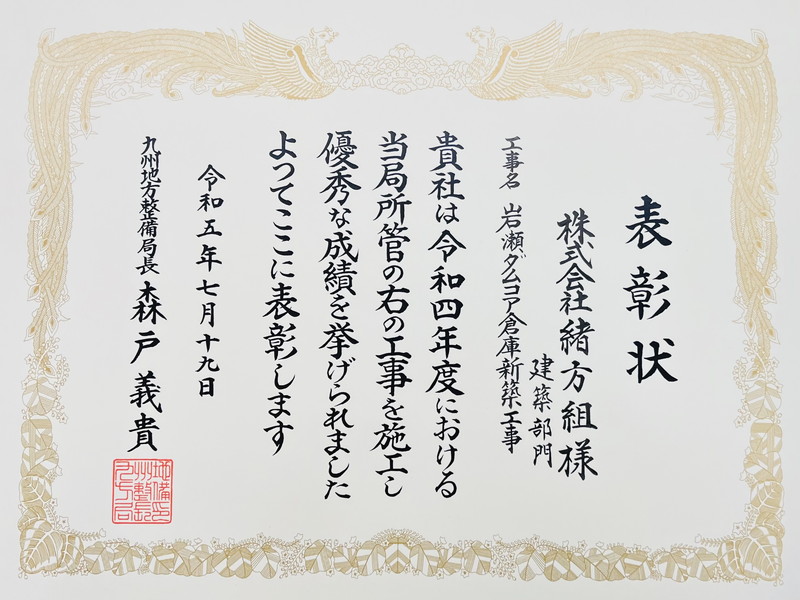 表彰状
株式会社緒方組様
建築部門
工事名 岩瀬ダムコア倉庫新築工事
貴社は令和四年度における
当局所管の右の工事を施工し
優秀な成績を挙げられました
よってここに表彰します
令和五年七月十九日
九州地方整備局長 森戸義貴